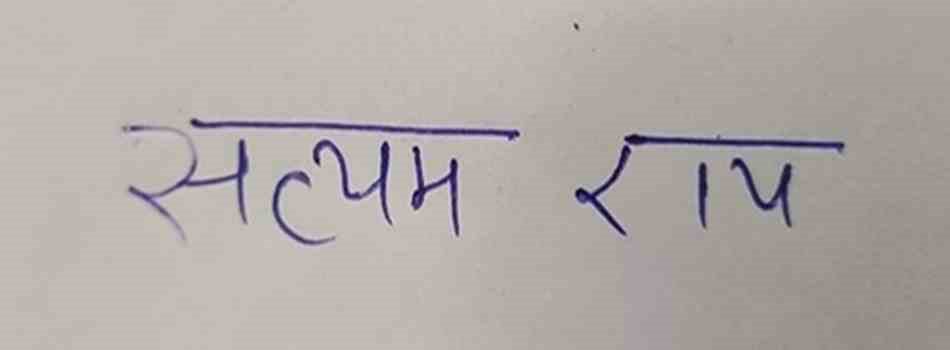 सत्यम राय